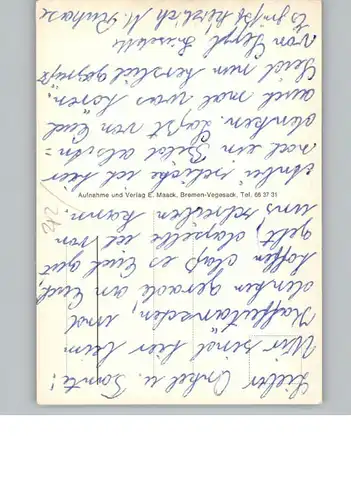 Lieber Onkel u. Tante!
Wir sind hier beim
Kaffeetrinken, und
denken gerade an Euch,
hoffen daß es Euch gut
geht, dasselbe ich von
uns schreiben kann.
Aufnahme und Verlag E. Maack, Bremen-Vegesack, Tel. 66 37 31
ich hier
noch ein Bild als An=
denken. Laßt von Euch
auch mal was hören.
Seid nun herzlich gegrüßt
von
Es grüßt herzlich